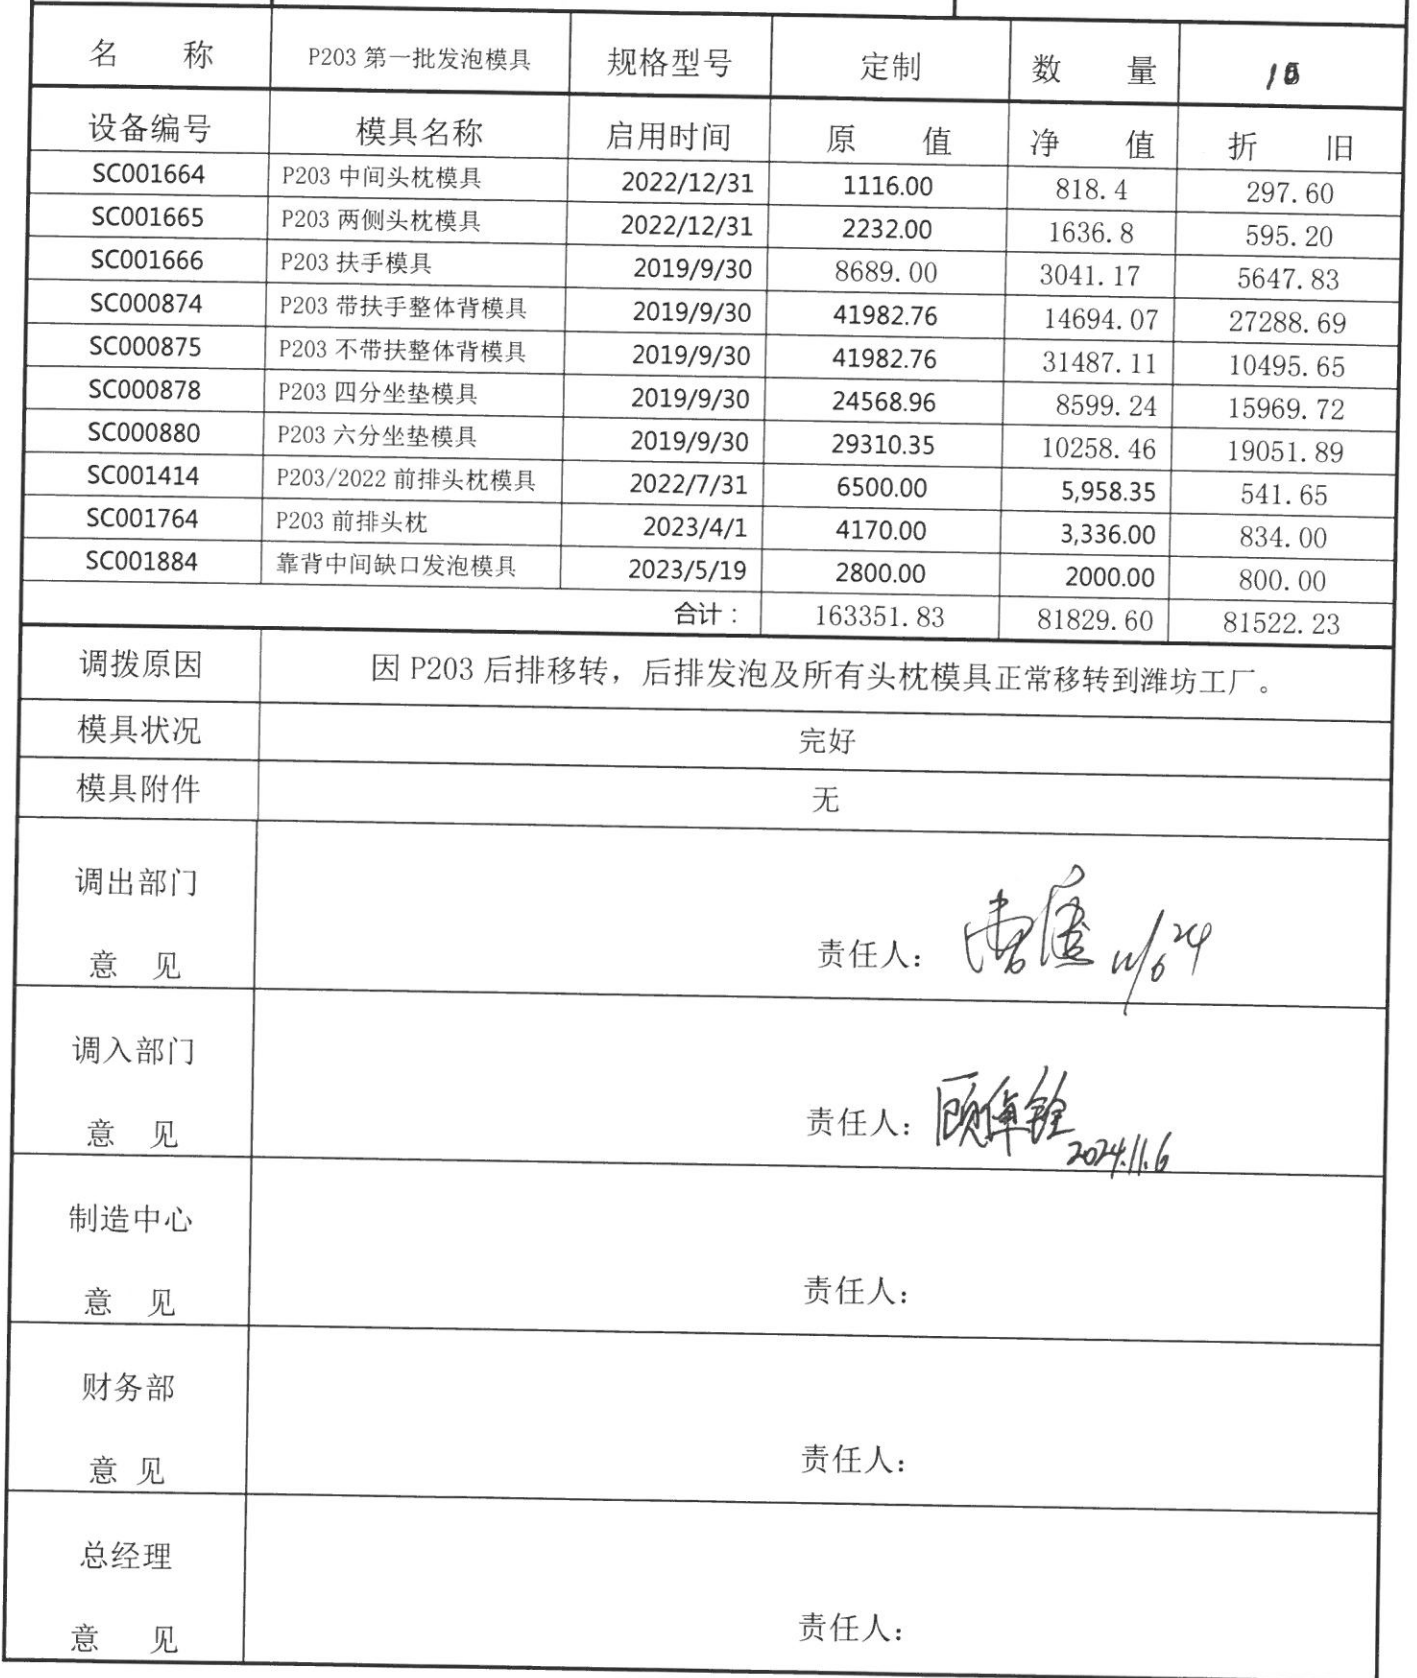 名 称 P203 第一批发泡模具 规格型号 定制 数 量
设备编号 模具名称 启用时间 原 值 净 值 折 旧
SC001664 P203 中间头枕模具 2022/12/31 1116.00 818.4 297.60
SC001665 P203 两侧头枕模具 2022/12/31 2232.00 1636.8 595.20
SC001666 P203 扶手模具 2019/9/30 8689.00 3041.17 5647.83
SC000874 P203 带扶手整体背模具 2019/9/30 41982.76 14694.07 27288.69
SC000875 P203 不带扶整体背模具 2019/9/30 41982.76 31487.11 10495.65
SC000878 P203 四分坐垫模具 2019/9/30 24568.96 8599.24 15969.72
SC000880 P203 六分坐垫模具 2019/9/30 29310.35 10258.46 19051.89
SC001414 P203/2022 前排头枕模具 2022/7/31 6500.00 5,958.35 541.65
SC001764 P203 前排头枕 2023/4/1 4170.00 3,336.00 834.00
SC001884 靠背中间缺口发泡模具 2023/5/19 2800.00 2000.00 800.00
合计： 163351.83 81829.60 81522.23
调拨原因 因 P203 后排移转，后排发泡及所有头枕模具正常移转到潍坊工厂。
模具状况 完好
模具附件 无
调出部门
意 见 责任人：
调入部门
意 见 责任人：顾伟铨
2024.11.6
制造中心
意 见 责任人：
财务部
意 见 责任人：
总经理
意 见 责任人：